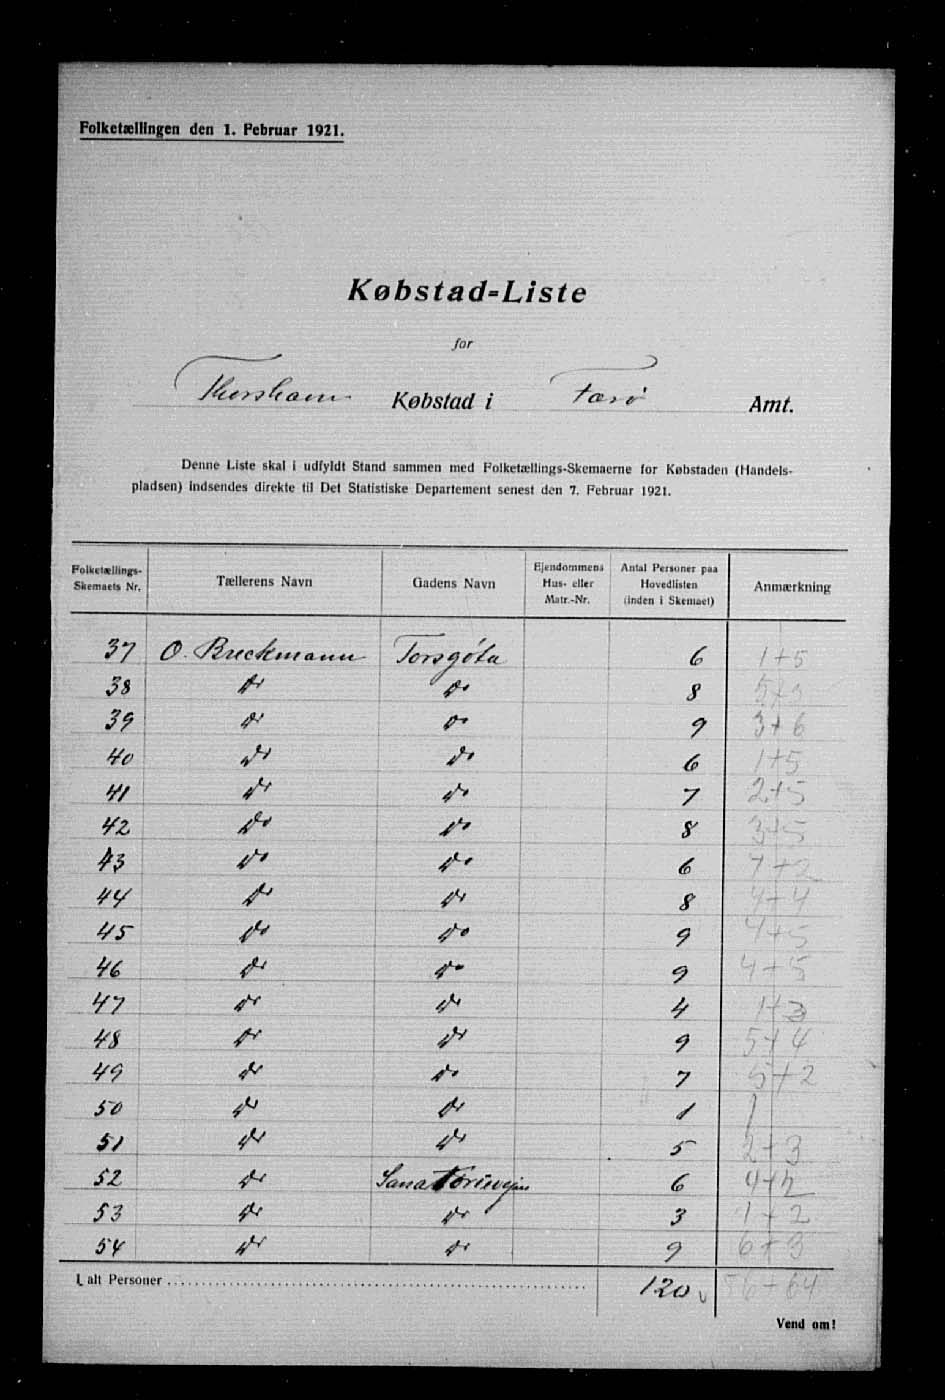 Folketællingen den 1. Februar 1921.
Købstad-Liste
for
Thorshavn Købstad i Færø Amt.
Denne Liste skal i udfyldt Stand sammen med Folketællings-Skemaerne for Købstaden (Handels-
pladsen) indsendes direkte til Det Statistiske Departement senest den 7. Februar 1921.
Folketællings-Skemaets Nr. Tællerens Navn Gadens Navn Ejendommens Hus- eller Matr.-Nr. Antal Personer paa Hovedlisten (inden i Skemaet) Anmærkning
37 O. Breckmann Torsgøta 6 1+5
38 Do Do 8 5+3
39 Do Do 9 3+6
40 Do Do 6 1+5
41 Do Do 7 2+5
42 Do Do 8 3+5
43 Do Do 6
44 Do Do 8 4+4
45 Do Do 9 4+5
46 Do Do 9 4+5
47 Do Do 4 1+3
48 Do Do 9 5+4
49 Do Do 7 5+2
50 Do Do 1 1
51 Do Do 5 2+3
52 Do Sanatorievejen 6 4+2
53 Do Do 3 1+2
54 Do Do 9 6+3
I alt Personer 120 56+64
Vend om!